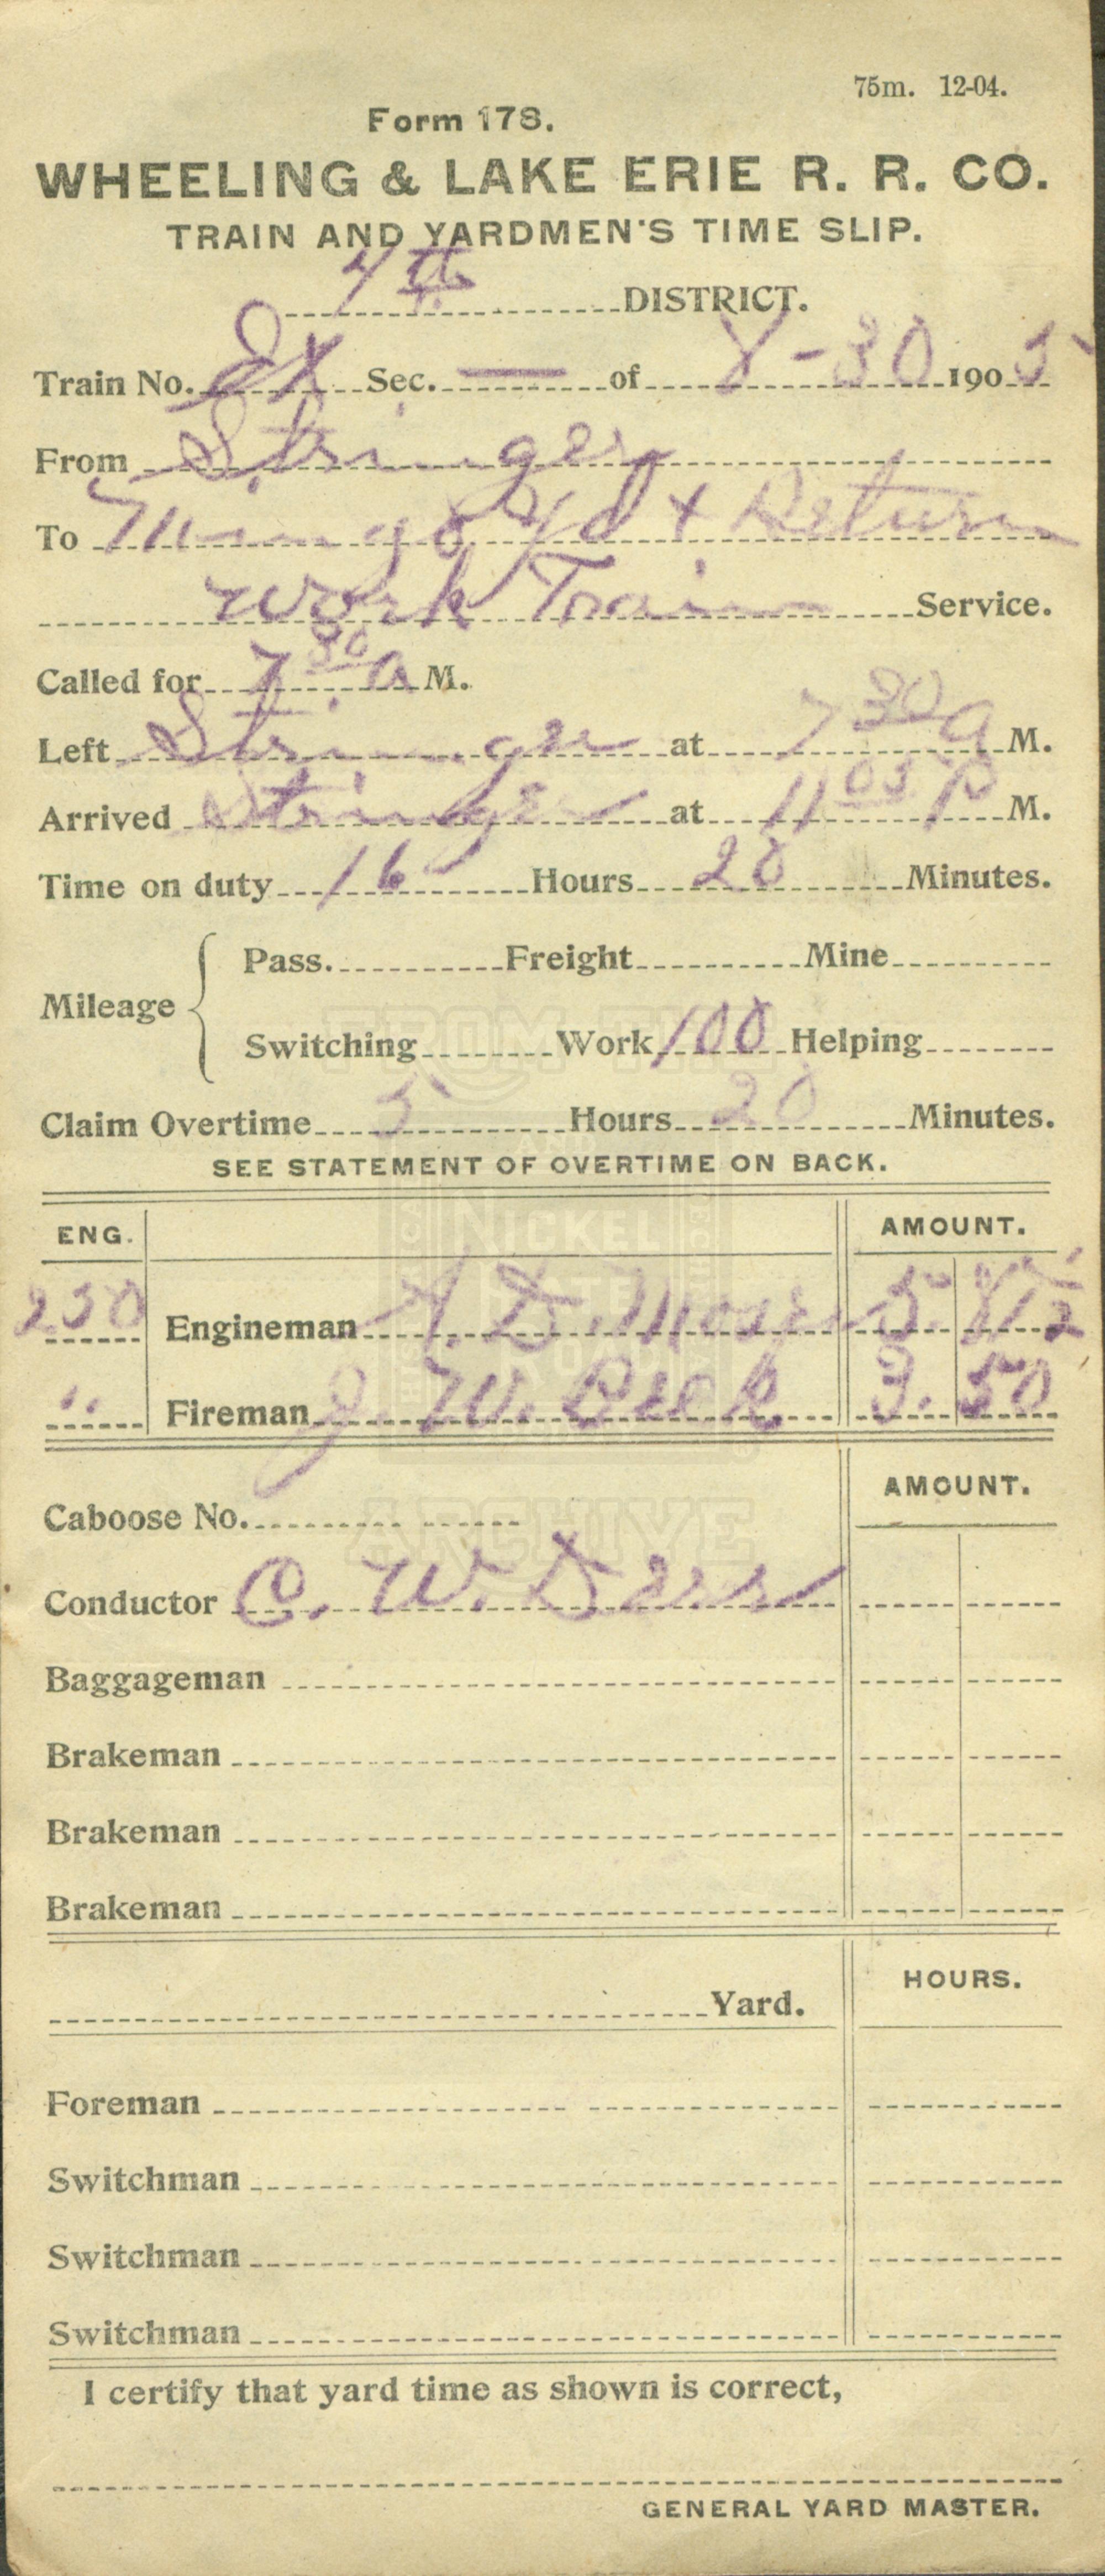 75m. 12-04.
Form 178.
WHEELING & LAKE ERIE R. R. CO.
TRAIN AND YARDMEN'S TIME SLIP.
4th DISTRICT.
Train No. Ex Sec. — of 8-30 1905
From Stringer
To Mingo Yd + Return
Work Train Service.
Called for 7 30 a M.
Left Stringer at 7 30 a M.
Arrived Stringer at 11 05 P M.
Time on duty 16 Hours 20 Minutes.
Mileage
Pass. Freight Mine
Switching Work 100 Helping
Claim Overtime 5 Hours 20 Minutes.
SEE STATEMENT OF OVERTIME ON BACK.
ENG. AMOUNT.
250 Engineman A. D. 5.
" Fireman J. W. 3.50
AMOUNT.
Caboose No.
Conductor C. W.
Baggageman
Brakeman
Brakeman
Brakeman
Yard. HOURS.
Foreman
Switchman
Switchman
Switchman
I certify that yard time as shown is correct,
GENERAL YARD MASTER.
FROM THE
NICKEL
PLATE
ROAD
ARCHIVE